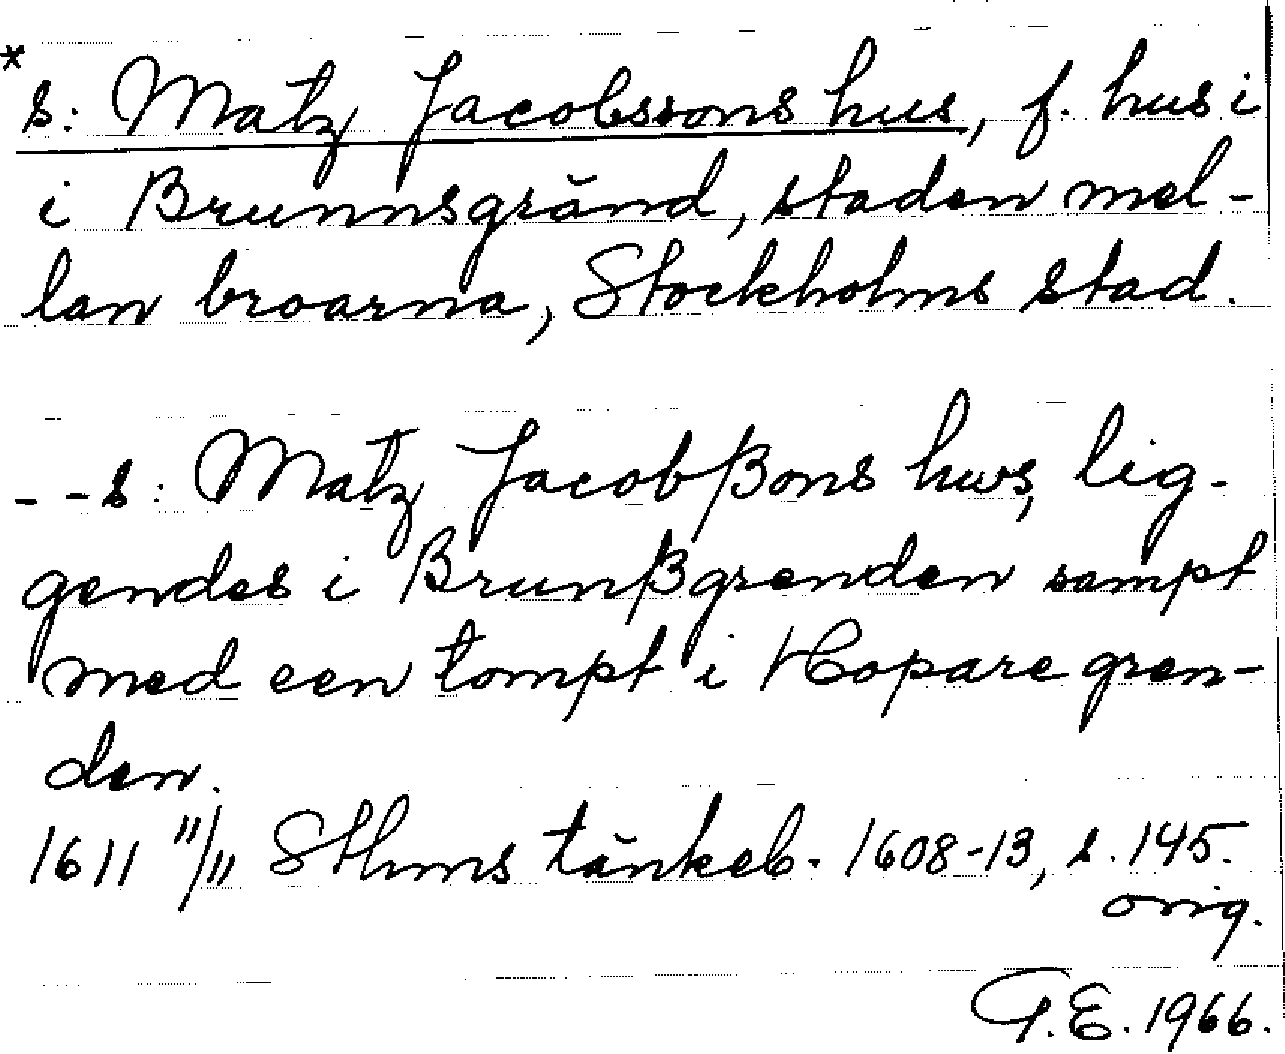 * s: Matz Jacobssons hus, f. hus i
i Brunnsgränd, staden mel-
lan broarna, Stockholms stad.
- - s: Matz Jacobßons hws, lig-
gendes i Brunßgrenden sampt
med een tompt i Kopare gren-
den.
1611 11/11 Sthms tänkeb. 1608-13, s. 145.
orig.
G.E. 1966.